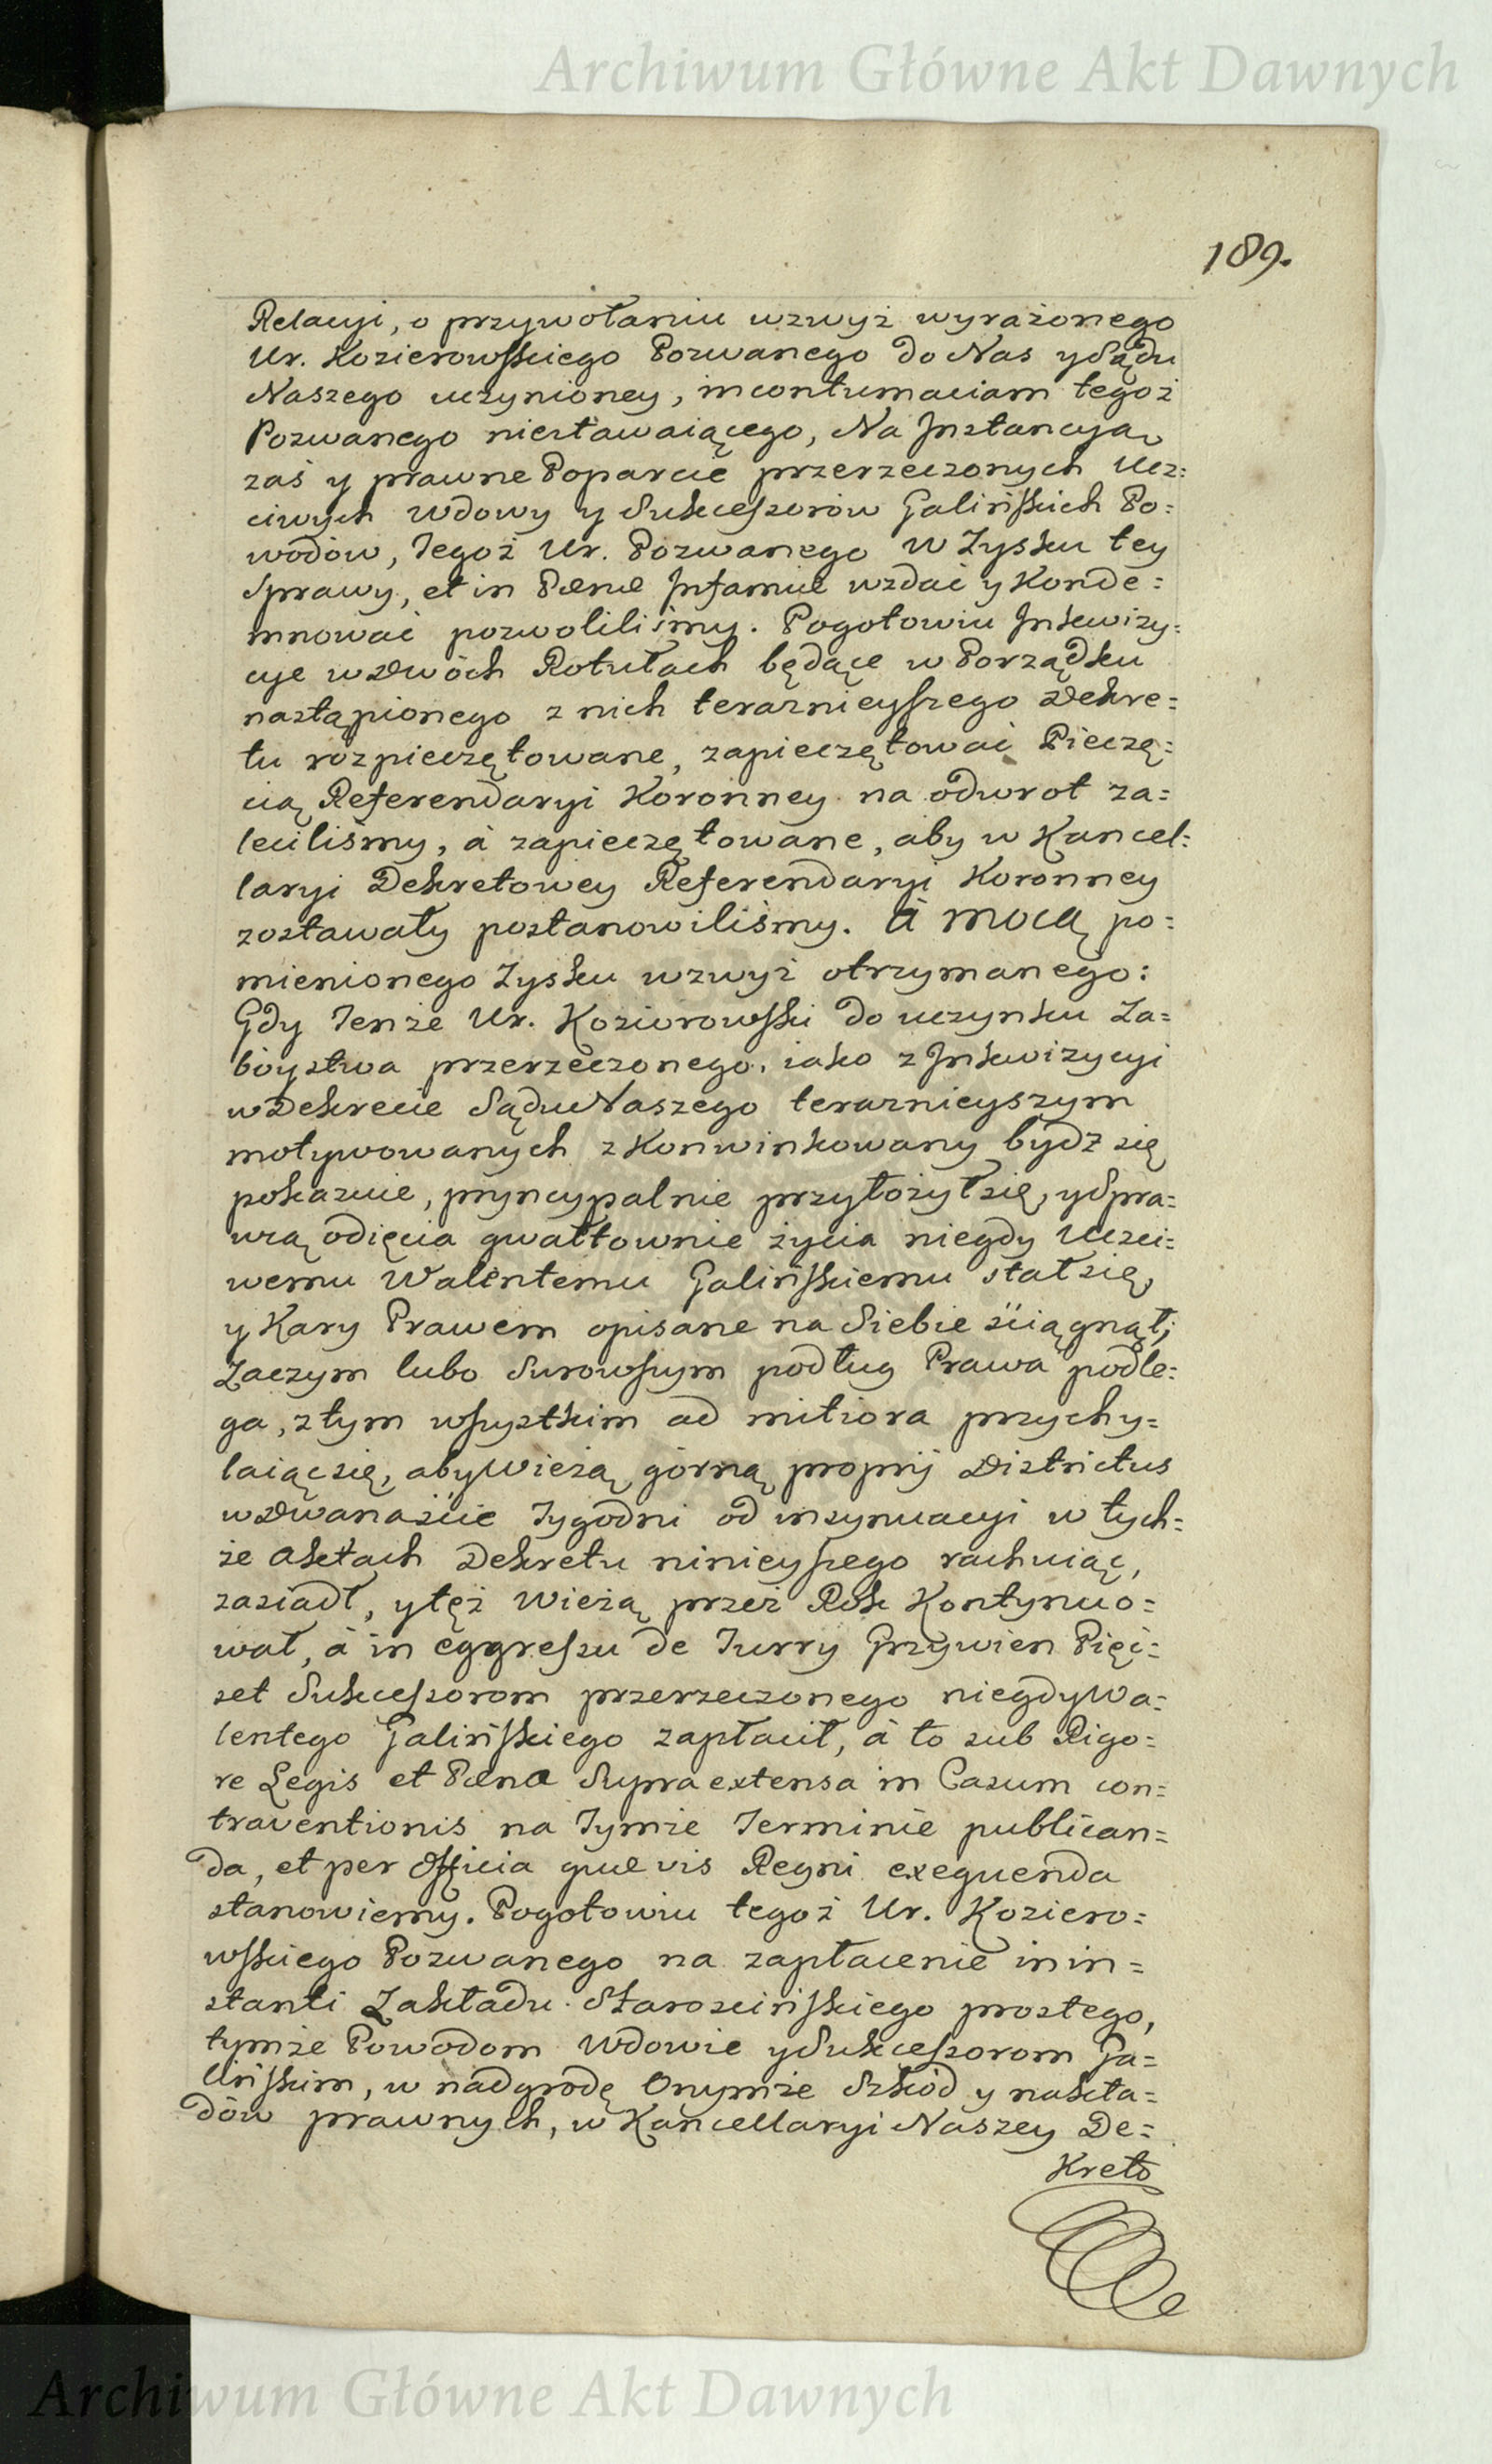 Archiwum Główne Akt Dawnych
189.
Relacyi, o przywołaniu wzwyż wyrażonego
Ur. Kozierowskiego Pozwanego do Nas y Sądu
Naszego uczynioney, in contumaciam tegoż
Pozwanego niestawaiącego, Na Jnstancyą
zaś y prawne Poparcie przerzeczonych Ucz=
ciwych Wdowy y Sukcessorow Galińskich Po=
wodów, Tegoż Ur. Pozwanego w Zysku tey
Sprawy, et in Pænæ Jnfamiæ wzdać y Konde=
mnować pozwoliliśmy. Pogotowiu Jnkwizy=
cye w Dwóch Rotułach będące w Porządku
nastąpionego z nich teraznieyszego Dekre=
tu rozpieczętowane, zapieczętować Pieczę=
cią Referendaryi Koronney na odwrot za=
leciliśmy, à zapieczętowane, aby w Kancel=
laryi Dekretowey Referendaryi Koronney
zostawały postanowiliśmy. à mocą po=
mienionego Zysku wzwyż otrzymanego:
Gdy Tenże Ur. Koziorowski do uczynku Za=
bóystwa przerzeczonego, iako z Jnkwizycyi
w Dekrecie Sądu Naszego teraznieyszym
motywowanych z Konwinkowany bydź się
pokazuie, pryncypalnie przyłożył się, y Spra=
wcą odięcia gwałtownie życia niegdy Uczci=
wemu Walentemu Galińskiemu stał się,
y Kary Prawem opisane na Siebie ściągnął;
Zaczym lubo Surowszym podług Prawa podle=
ga, z tym wszystkim ad mitiora przychy=
laiąc się, aby Wieżą górną proprij Districtus
w Dwanaście Tygodni od insynuacyi w tych=
że Aktach Dekretu ninieyszego rachuiąc,
zasiadł, y też Wieżą przez Rok Kontynuo=
wał, à in eggressu de Turry Grzywien Pięć=
set Sukcessorom przerzeczonego niegdy Wa=
lentego Galińskiego zapłacił, à to sub Rigo=
re Legis et Pæna Supra extensa in Casum con=
traventionis na Tymże Terminie publican=
da, et per Officia quævis Regni exequenda
stanowiemy. Pogotowiu tegoż Ur. Koziero=
wskiego Pozwanego na zapłacenie in in=
stanti Zakładu Starościńskiego prostego,
tymże Powodom Wdowie y Sukcessorom Ga=
lińskim, w nadgrodę Onymże Szkód y nakła=
dów prawnych, w Kancellaryi Naszey De=
Kreto
Archiwum Główne Akt Dawnych